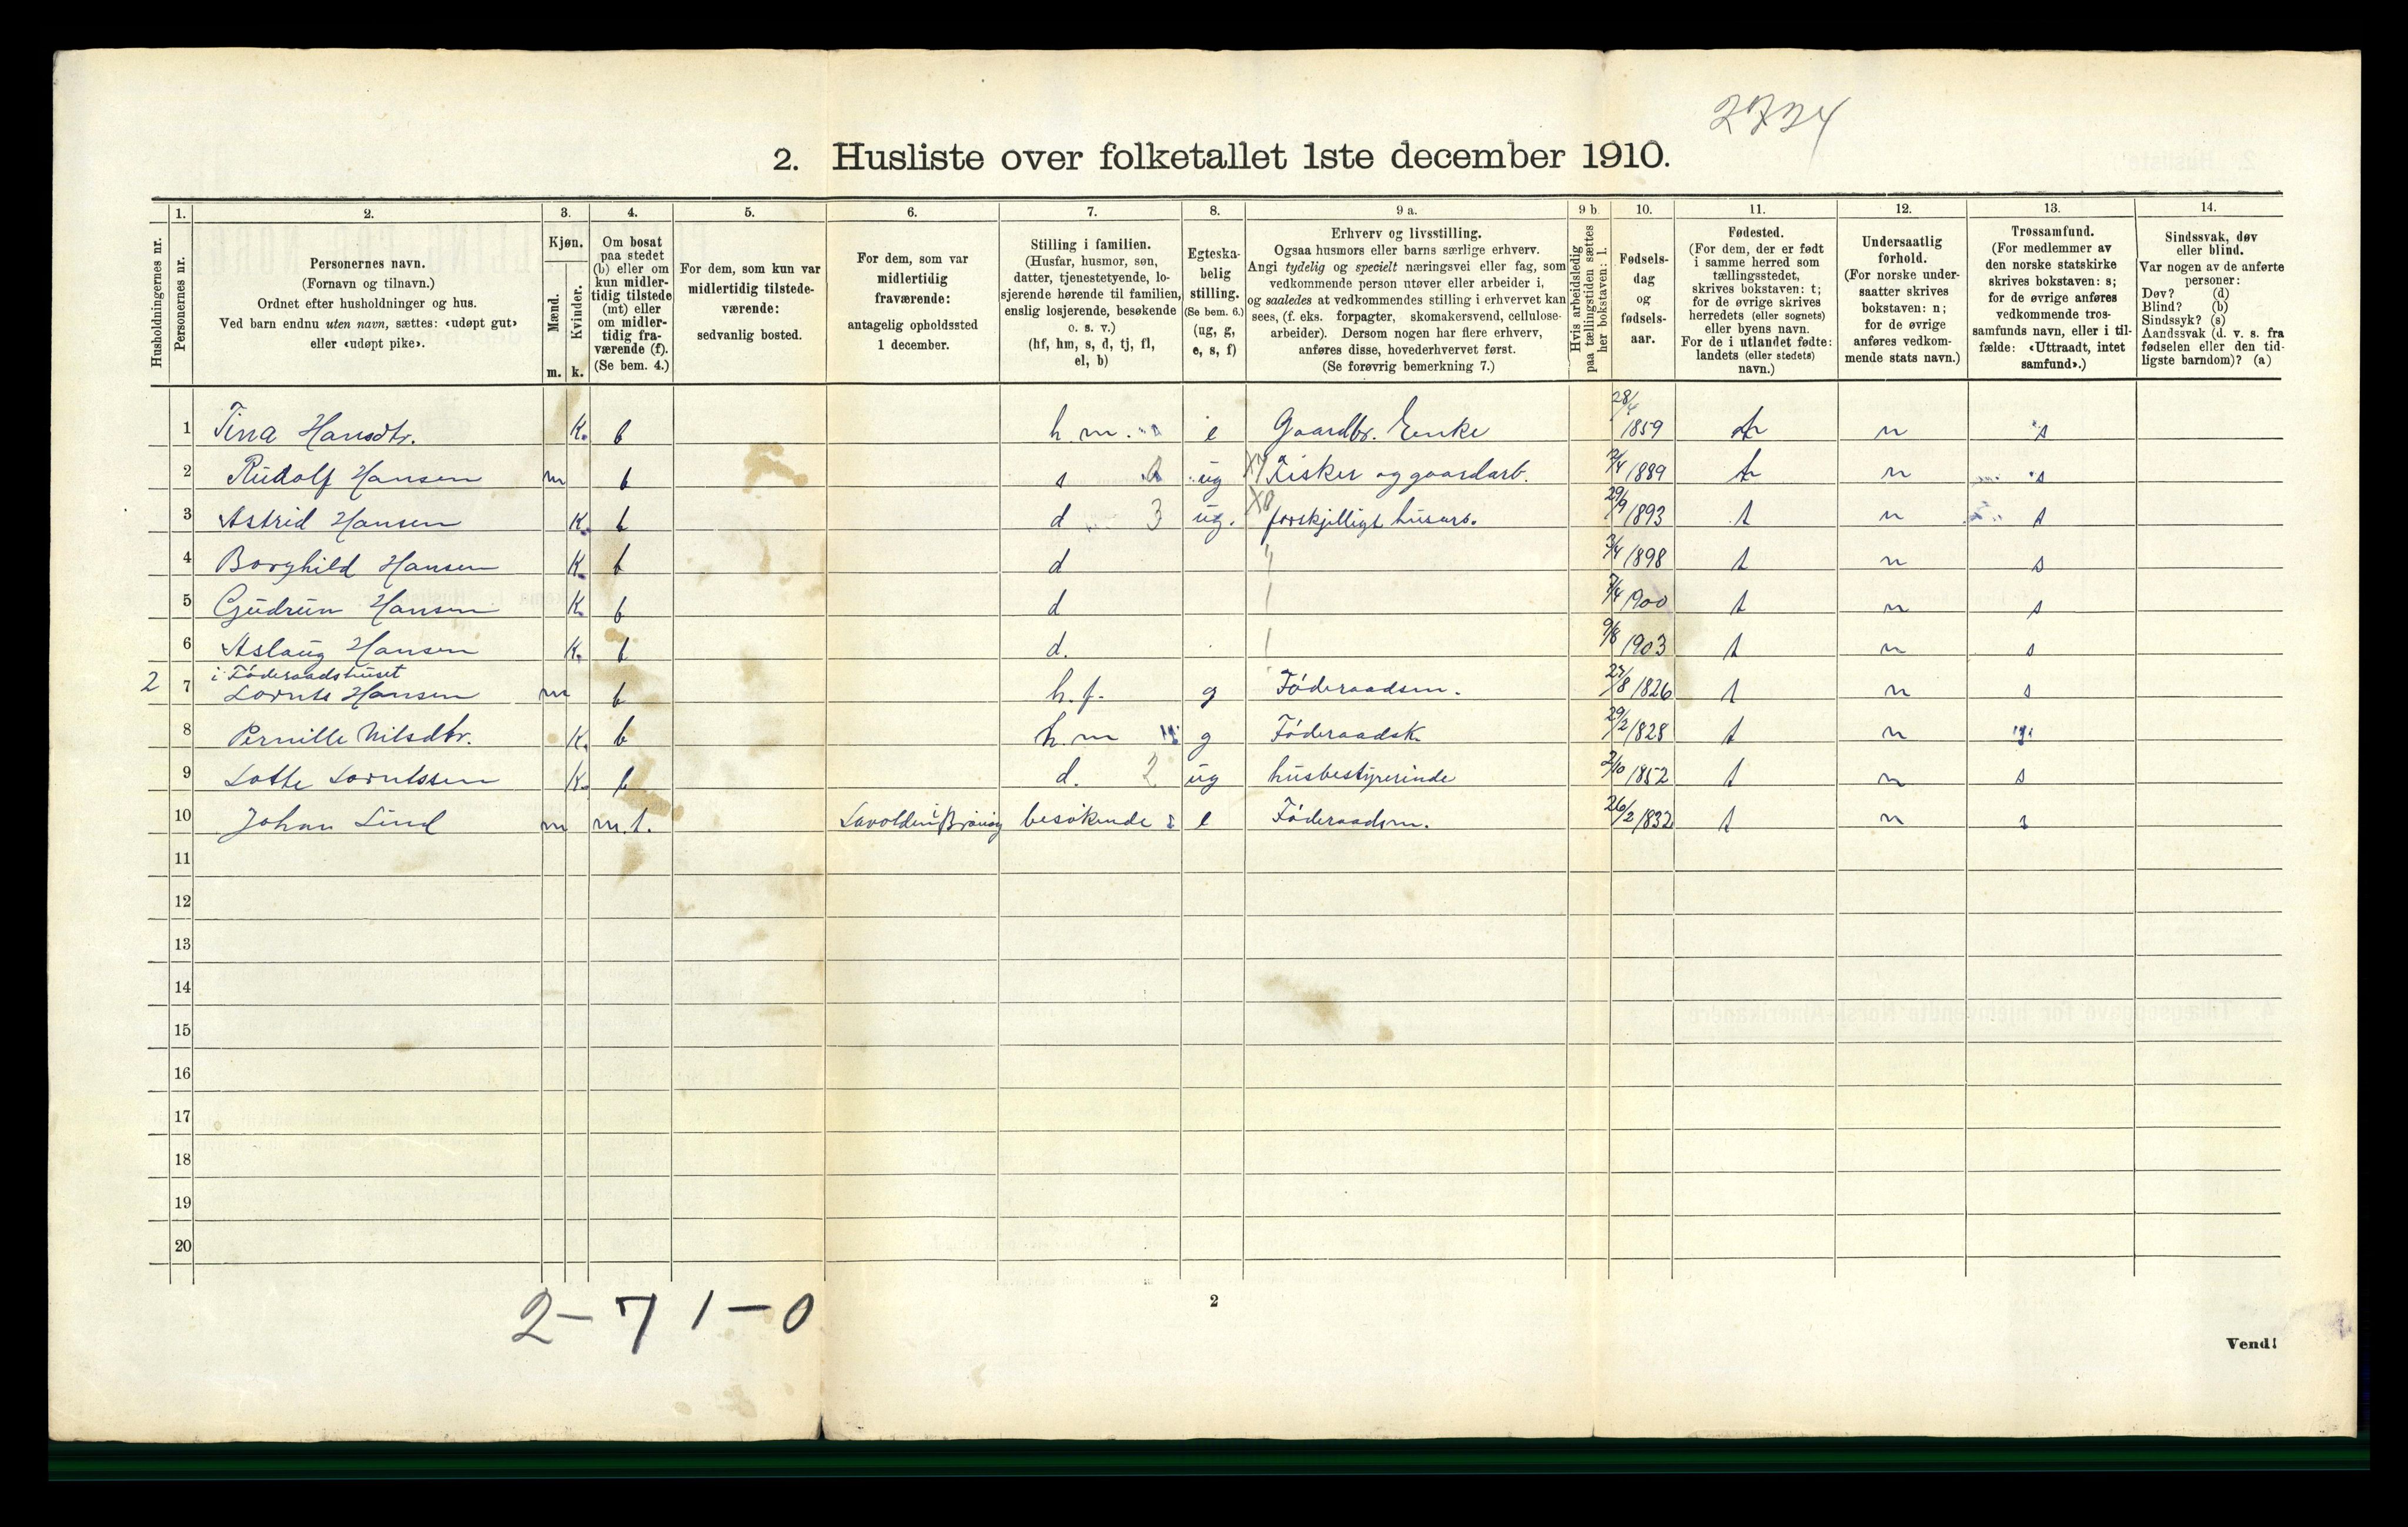 2724
2. Husliste over folketallet 1ste december 1910.
Husholdningernes nr.
1. Personernes nr.
2. Personernes navn.
(Fornavn og tilnavn.)
Ordnet efter husholdninger og hus.
Ved barn endnu uten navn, sættes: «udøpt gut»
eller «udøpt pike».
3. Kjøn.
Mænd. m.
Kvinder. k.
4. Om bosat
paa stedet
(b) eller om
kun midler-
tidig tilstede
(mt) eller
om midler-
tidig fra-
værende (f).
(Se bem. 4.)
5. For dem, som kun var
midlertidig tilstede-
værende:
sedvanlig bosted.
6. For dem, som var
midlertidig
fraværende:
antagelig opholdssted
1 december.
7. Stilling i familien.
(Husfar, husmor, søn,
datter, tjenestetyende, lo-
sjerende hørende til familien,
enslig losjerende, besøkende
o. s. v.)
(hf, hm, s, d, tj, fl,
el, b)
8. Egteska-
belig
stilling.
(Se bem. 6.)
(ug, g,
e, s, f)
9 a. Erhverv og livsstilling.
Ogsaa husmors eller barns særlige erhverv.
Angi tydelig og specielt næringsvei eller fag, som
vedkommende person utøver eller arbeider i,
og saaledes at vedkommendes stilling i erhvervet kan
sees, (f. eks. forpagter, skomakersvend, cellulose-
arbeider). Dersom nogen har flere erhverv,
anføres disse, hovederhvervet først.
(Se forøvrig bemerkning 7.)
9 b Hvis arbeidsledig
paa tællingstiden sættes
her bokstaven: l.
10. Fødsels-
dag
og
fødsels-
aar.
11. Fødested.
(For dem, der er født
i samme herred som
tællingsstedet,
skrives bokstaven: t;
for de øvrige skrives
herredets (eller sognets)
eller byens navn.
For de i utlandet fødte:
landets (eller stedets)
navn.)
12. Undersaatlig
forhold.
(For norske under-
saatter skrives
bokstaven: n;
for de øvrige
anføres vedkom-
mende stats navn.)
13. Trossamfund.
(For medlemmer av
den norske statskirke
skrives bokstaven: s;
for de øvrige anføres
vedkommende tros-
samfunds navn, eller i til-
fælde: «Uttraadt, intet
samfund».)
14. Sindssvak, døv
eller blind.
Var nogen av de anførte
personer:
Døv? (d)
Blind? (b)
Sindssyk? (s)
Aandssvak (d. v. s. fra
fødselen eller den tid-
ligste barndom)? (a)
1 Tina Hansdtr. K. b h.m. e Gaardbr. Enke 28/4 1859 t n s
2 Rudolf Hansen m b s ug Fisker og gaardarb. 2/4 1889 t n s
3 Astrid Hansen K. b d 3 ug. forskjelligt husarb. 29/9 1893 t n s
4 Borghild Hansen K. b d " 3/4 1898 t n s
5 Gudrun Hansen K. b d 7/4 1900 t n s
6 Aslaug Hansen K. b d. 9/8 1903 t n s
i Føderaadshuset
2 7 Lornts Hansen m b h.f. g Føderaadsm. 27/8 1826 t n s
8 Pernille Nilsdtr. K. b h.m g Føderaadsk. 29/2 1828 t n
9 Lotte Lorntssen K. b d. 2 ug husbestyrerinde 2/10 1852 t n s
10 Johan Lind m m.t. i besøkende e Føderaadsm. 26/2 1832 t n s
11
12
13
14
15
16
17
18
19
20
2 - 7 1 - 0
2
Vend!